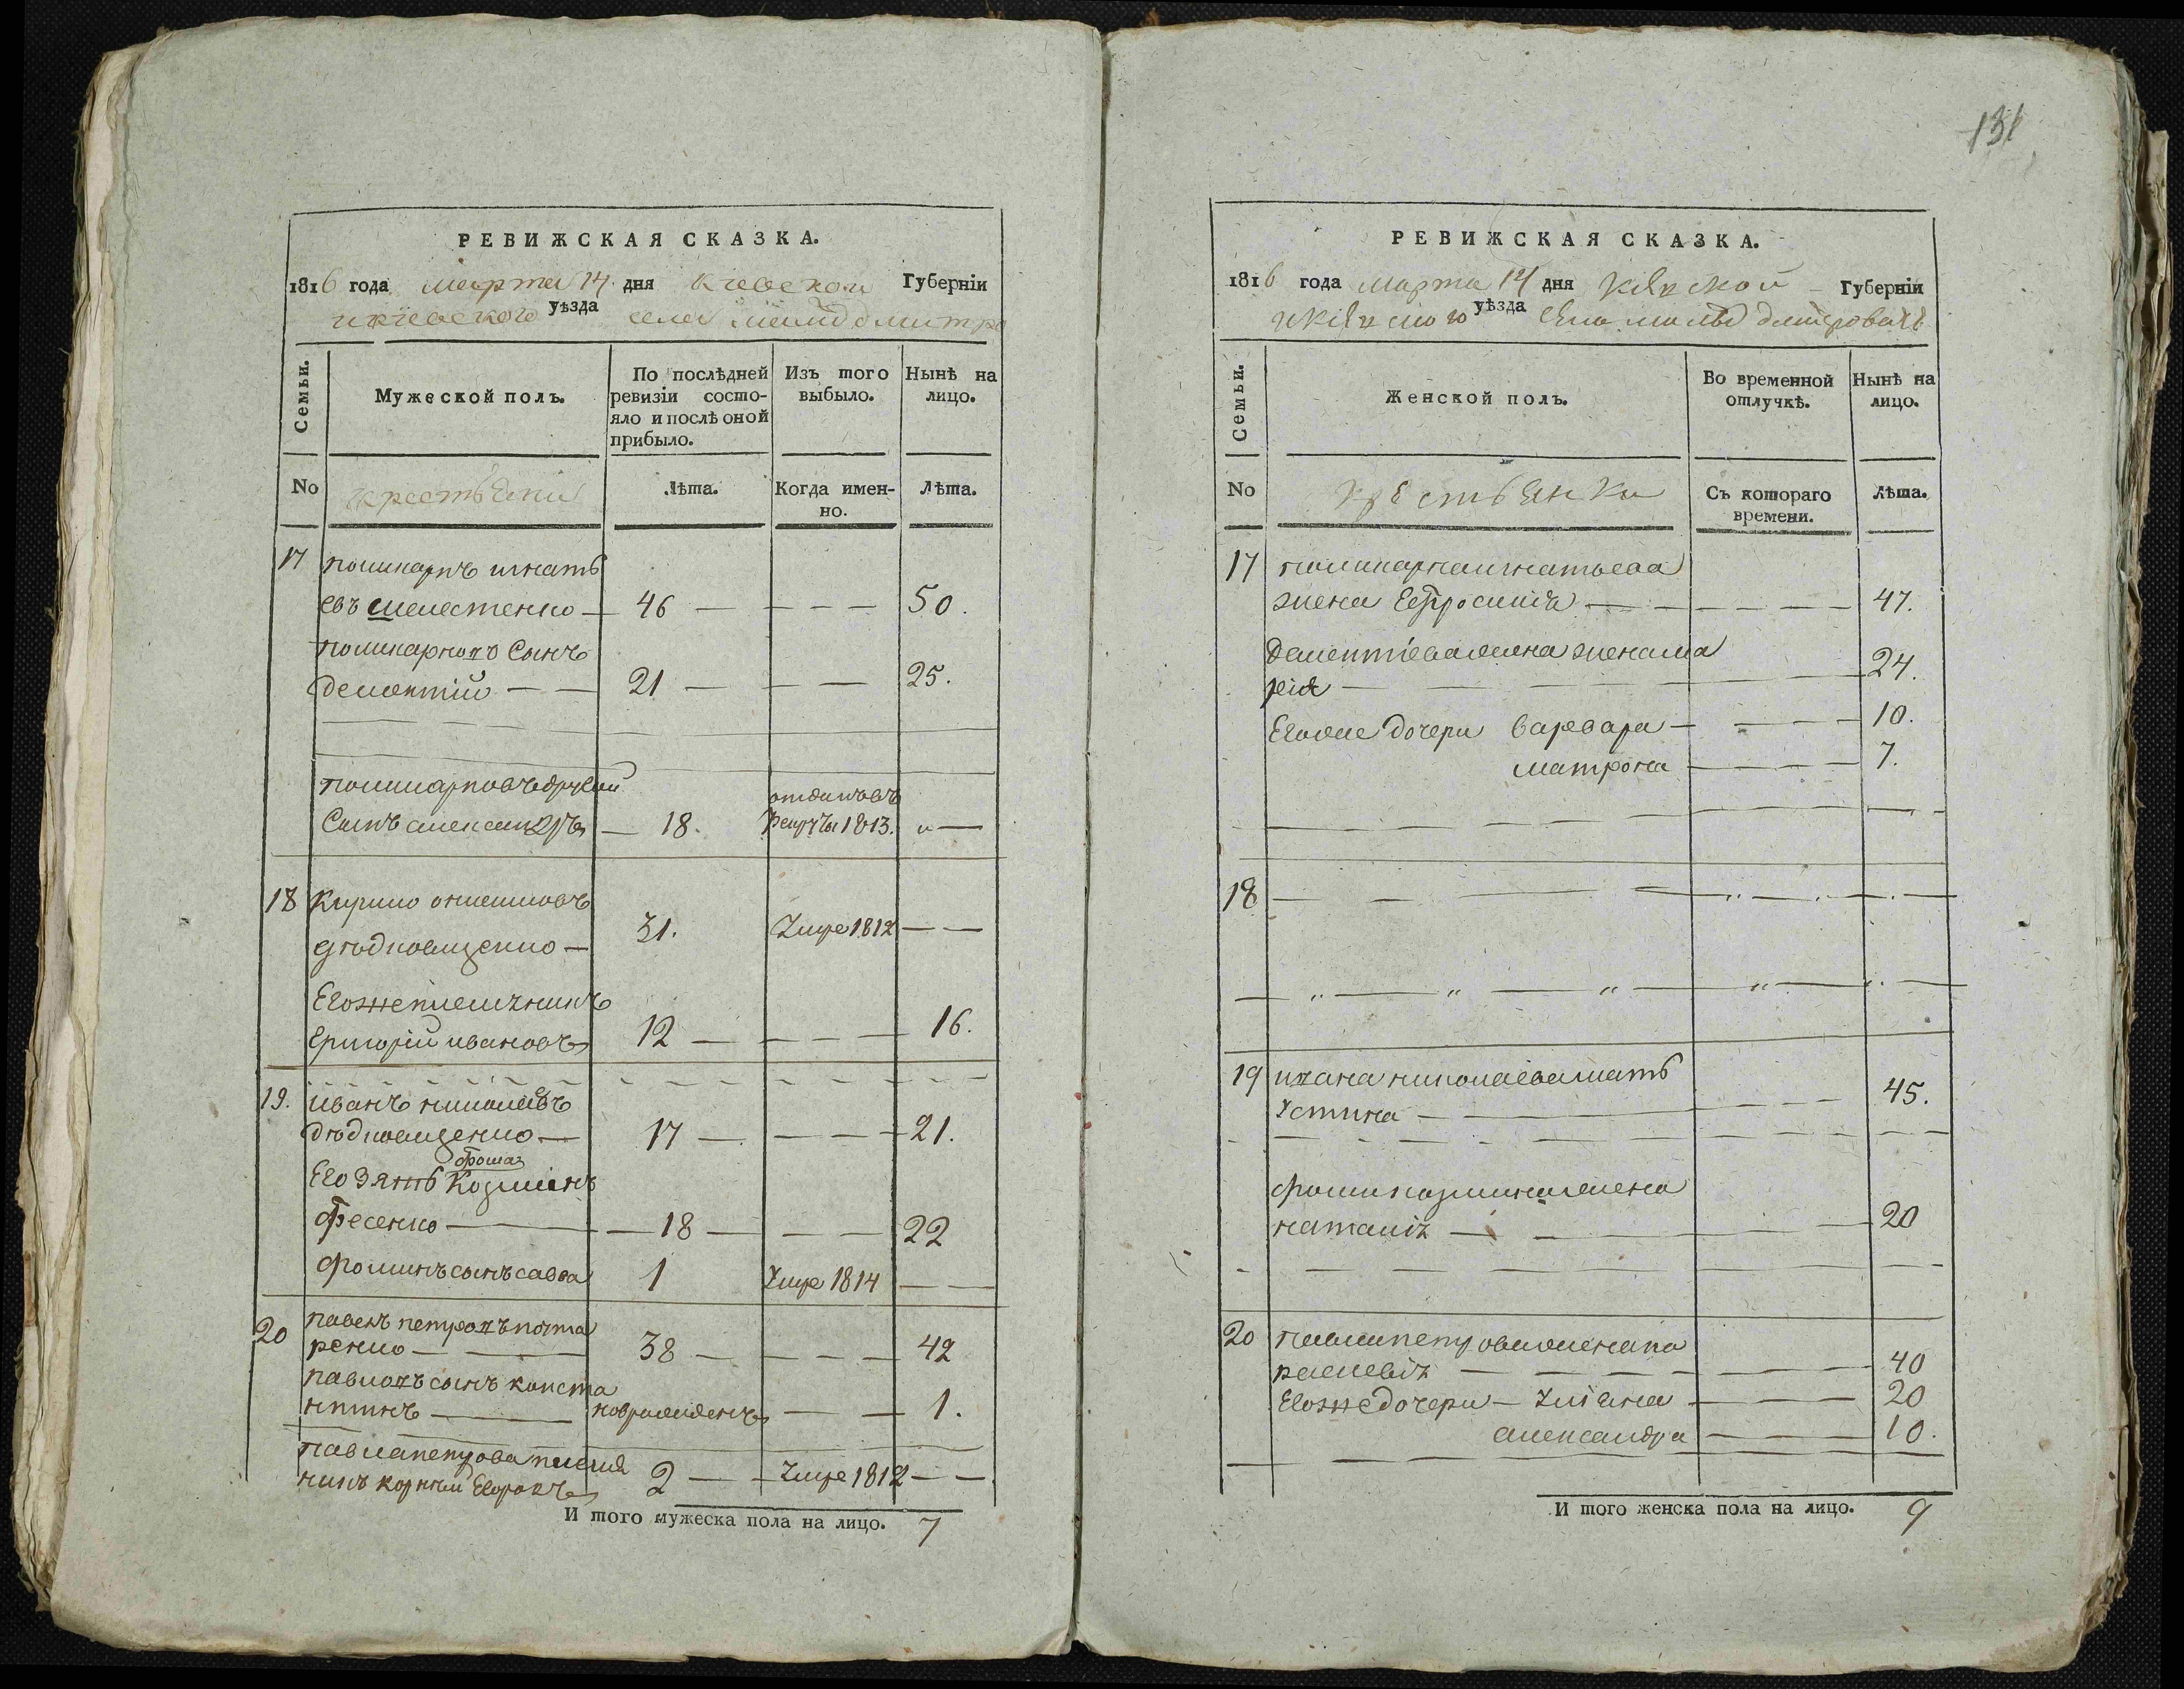 131
РЕВИЖСКАЯ СКАЗКА.
1816 года марта 14 дня Кіевской Губерніи
икіевского уѣзда села
Семьи.
Мужеской полъ.
По послѣдней ревизіи состо-
яло и послѣ оной
прибыло.
Изъ того
выбыло.
Нынѣ на
лицо.
No
крестьяни
Лѣта.
Когда имен-
но.
Лѣта.
17 поликарпъ игнать
евъ шелестенко — 46 — — — — 50.
поликарповъ Сынъ
дементий — — 21 — — — 25.
поликарповъ другий
Сынъ александръ — 18. отданъ въ рекруты 1813. —
18 Кирило
дѣдковщенко — 31. Умре 1812 — —
Егоже племянникъ
Григорій ивановъ 12 — — — — 16.
19. иванъ николаевъ
дѣдковщенко — 17 — — — — 21.
Его Зять фома Козминъ
фесенко — — 18 — — — 22
фоминъ сынъ савва 1 Умре 1814 — —
20 павелъ петровъ почта
ренко — — 38 — — — — 42
павловъ сынъ конста
нтинъ — новрожденъ — — 1.
павла петрова племя
никъ корнѣй Егоровъ 2 — — Умре 1812 — —
И того мужеска пола на лицо. 7
РЕВИЖСКАЯ СКАЗКА.
1816 года марта 14 дня Кіевской Губерніи
икіевского уѣзда Села
Семьи.
Женской полъ.
Во временной
отлучкѣ.
Нынѣ на
лицо.
No
Крестьянки
Съ котораго
времени.
Лѣта.
17 поликарпа игнатьева
жена Ефросинія — — — — — 47.
дементіева жена ма
рія — — — — 24.
Егоже дочери варвара — — — — 10.
матрона — — — — 7.
18 — — — — — —
19 ивана николаева мать
Устина — — — — 45.
фоми козмина жена
наталія — — — — 20
20 павла петрова жена па
раскевія — — — — 40
Егоже дочери — Уліяна — — — 20
александра — — — 10.
И того женска пола на лицо. 9